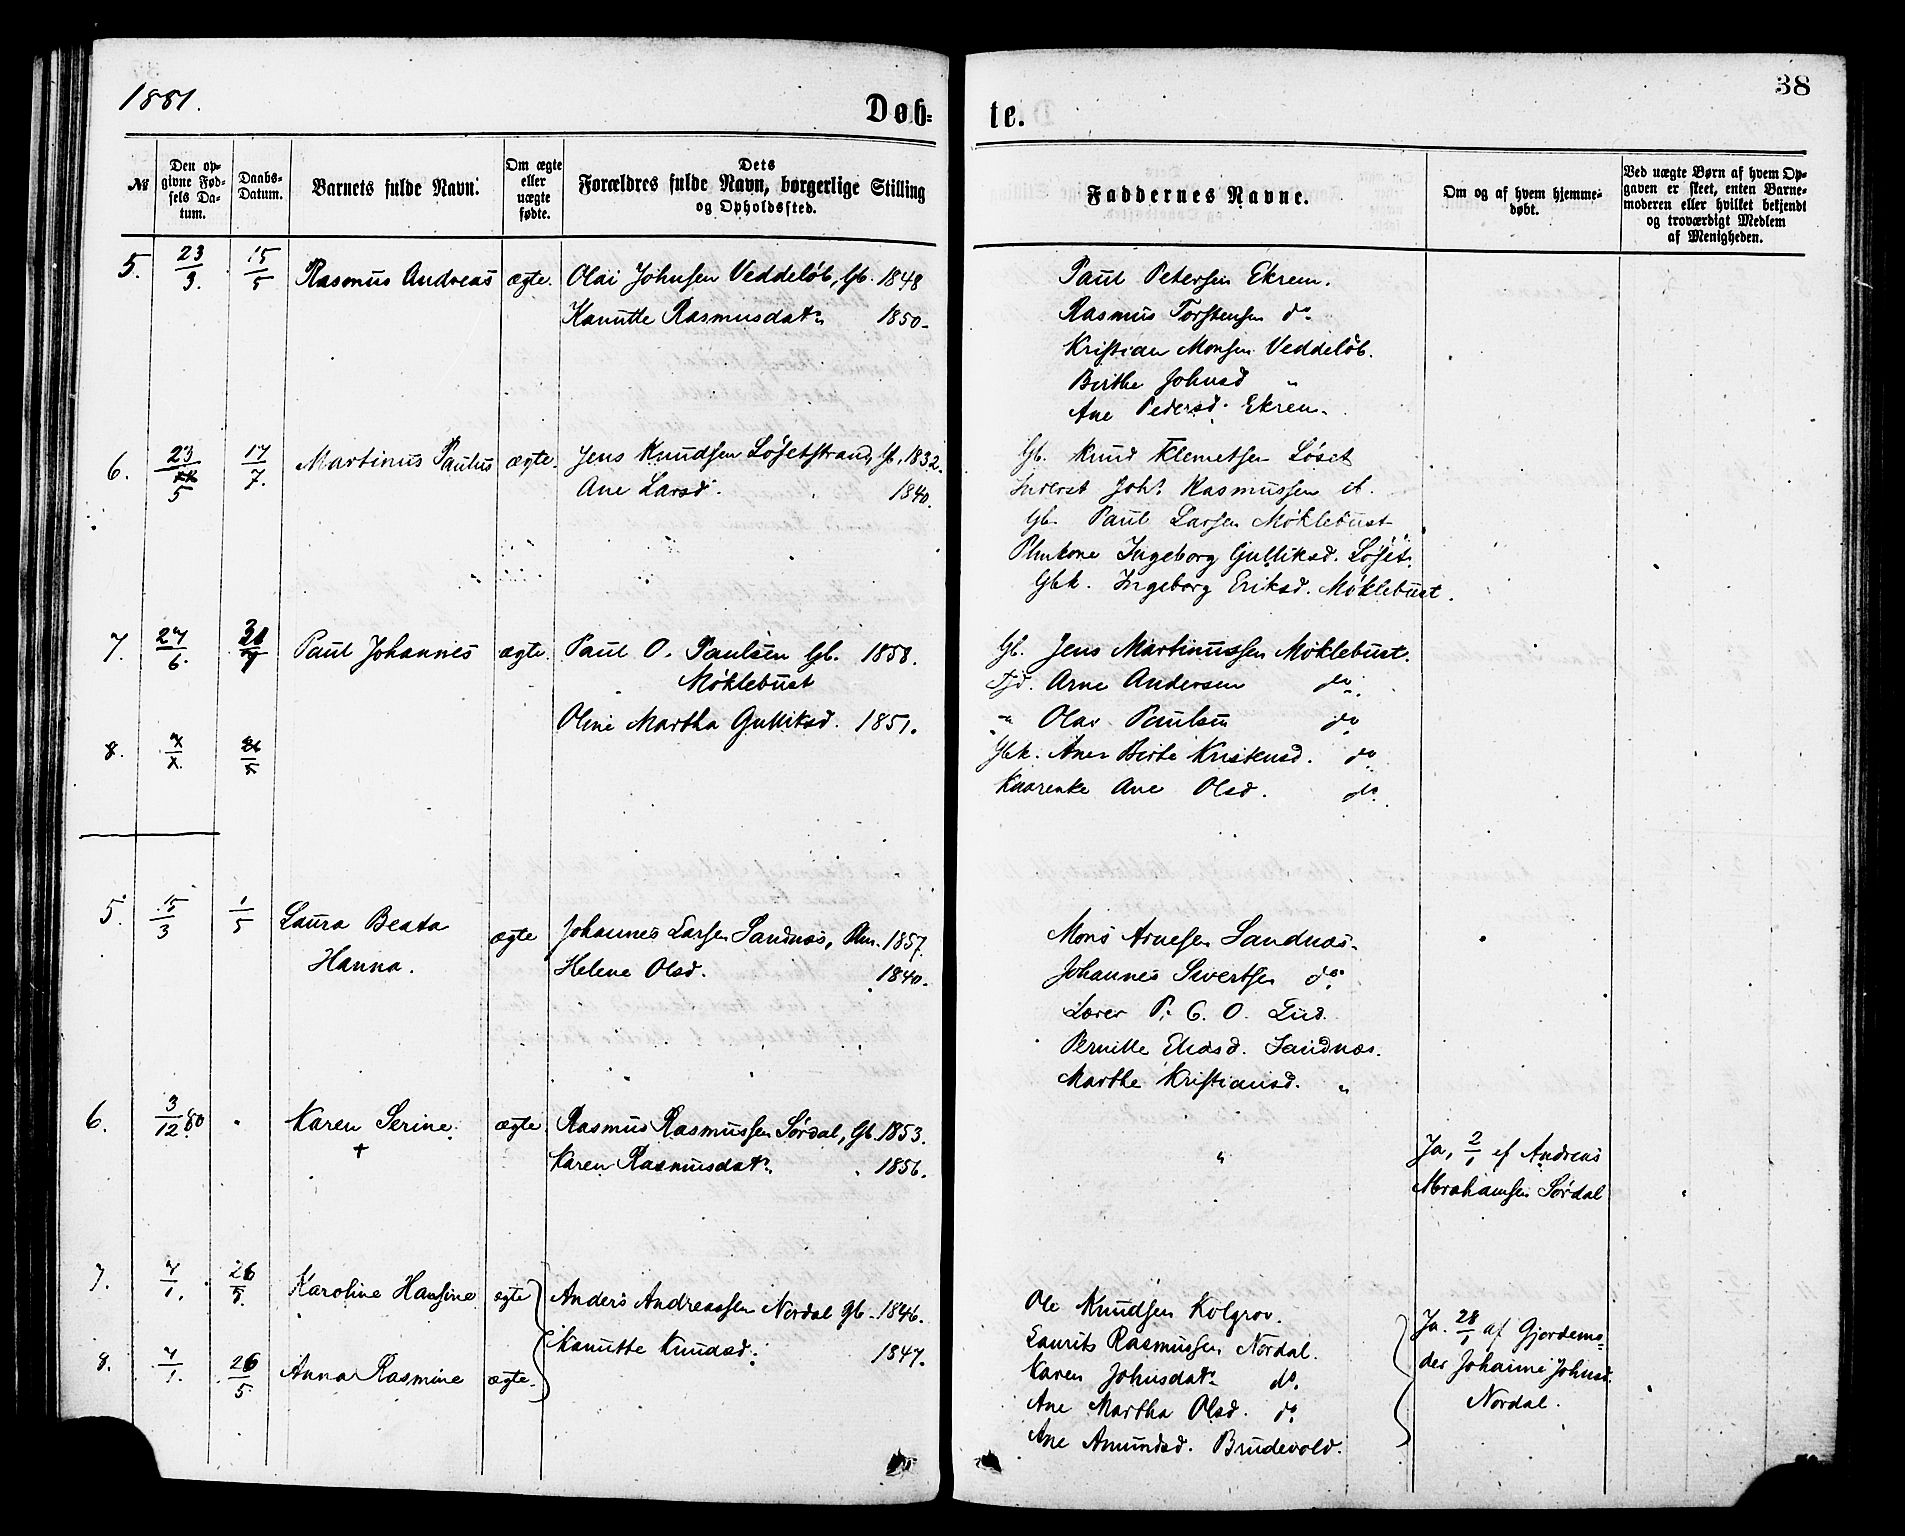 1881.
38
Døb-
te.
№
Den op-
givne Fød-
sels Da-
tum.
Daabs-
Datum.
Barnets fulde Navn.
Om ægte
eller
uægte
fødte.
Dets
Forældres fulde Navn, borgerlige Stilling
og Opholdssted.
Faddernes Navne.
Om og af hvem hjemme-
døbt.
Ved uægte Børn af hvem Op-
gaven er skeet, enten Barne-
moderen eller hvilket bekjendt
og troværdigt Medlem
af Menigheden.
5. 23/3. 15/5 Rasmus Andreas ægte. Olai Johnsen Veddeløb, Gb. 1848
Kanutte Rasmusdatr 1850.
Paul Petersen Ekrem.
Rasmus Torstensen do
Kristian Monsen Veddeløb.
Birthe Johnsd "
Ane Pedersd. Ekrem.
6. 23/5 17/7. Martinus Paulus ægte. Jens Knudsen Løsetstrand, Gb. 1832.
Ane Larsd. 1840.
Gb. Knud Klemetsen Løset
Inderst Johs Rasmussen ib.
Gb. Paul Larsen Møklebust
Plmkone Ingeborg Gulliksd. Løset.
Gbk. Ingeborg Eriksd. Møklebust.
7. 27/6. 31/7 Paul Johannes ægte. Paul O. Paulsen Gb. 1858.
Møklebust
Oline Martha Gulliksd. 1851.
Gb. Jens Martinussen Møklebust.
Tjd. Arne Andersen do
" Olav Paulsen do
Gbk. Ane Birte Kristensd. do
Kaarenke Ane Olsd. do
8.
5. 15/3 1/5 Laura Beata
Hanna.
ægte Johannes Larsen Sandnæs, Plm. 1857.
Helene Olsd. 1840.
Mons Arnesen Sandnæs.
Johannes Sivertsen do
Lærer P. C. O. Lud.
Pernille Eliasd. Sandnæs.
Marthe Kristiansd. "
6. 3/12 80 " Karen Serine.
+
ægte Rasmus Rasmussen Sørdal, Gb. 1853.
Karen Rasmusdatr. 1856.
"
Ja, 2/1 af Andreas
Abrahamsen Sørdal
7. 7/1. 26/5. Karoline Hansine ægte Anders Andreassen Nordal Gb. 1846.
Kanutte Knudsd. 1847.
8. 7/1. 26/5 Anna Rasmine ægte.
Ole Knudsen Kolgrov.
Laurits Rasmussen Nordal.
Karen Johnsdatr do.
Ane Martha Olsd. do
Ane Amundsd. Brudevold.
Ja. 28/1 af Gjordemo-
der Johanne Johnsd.
Nordal.